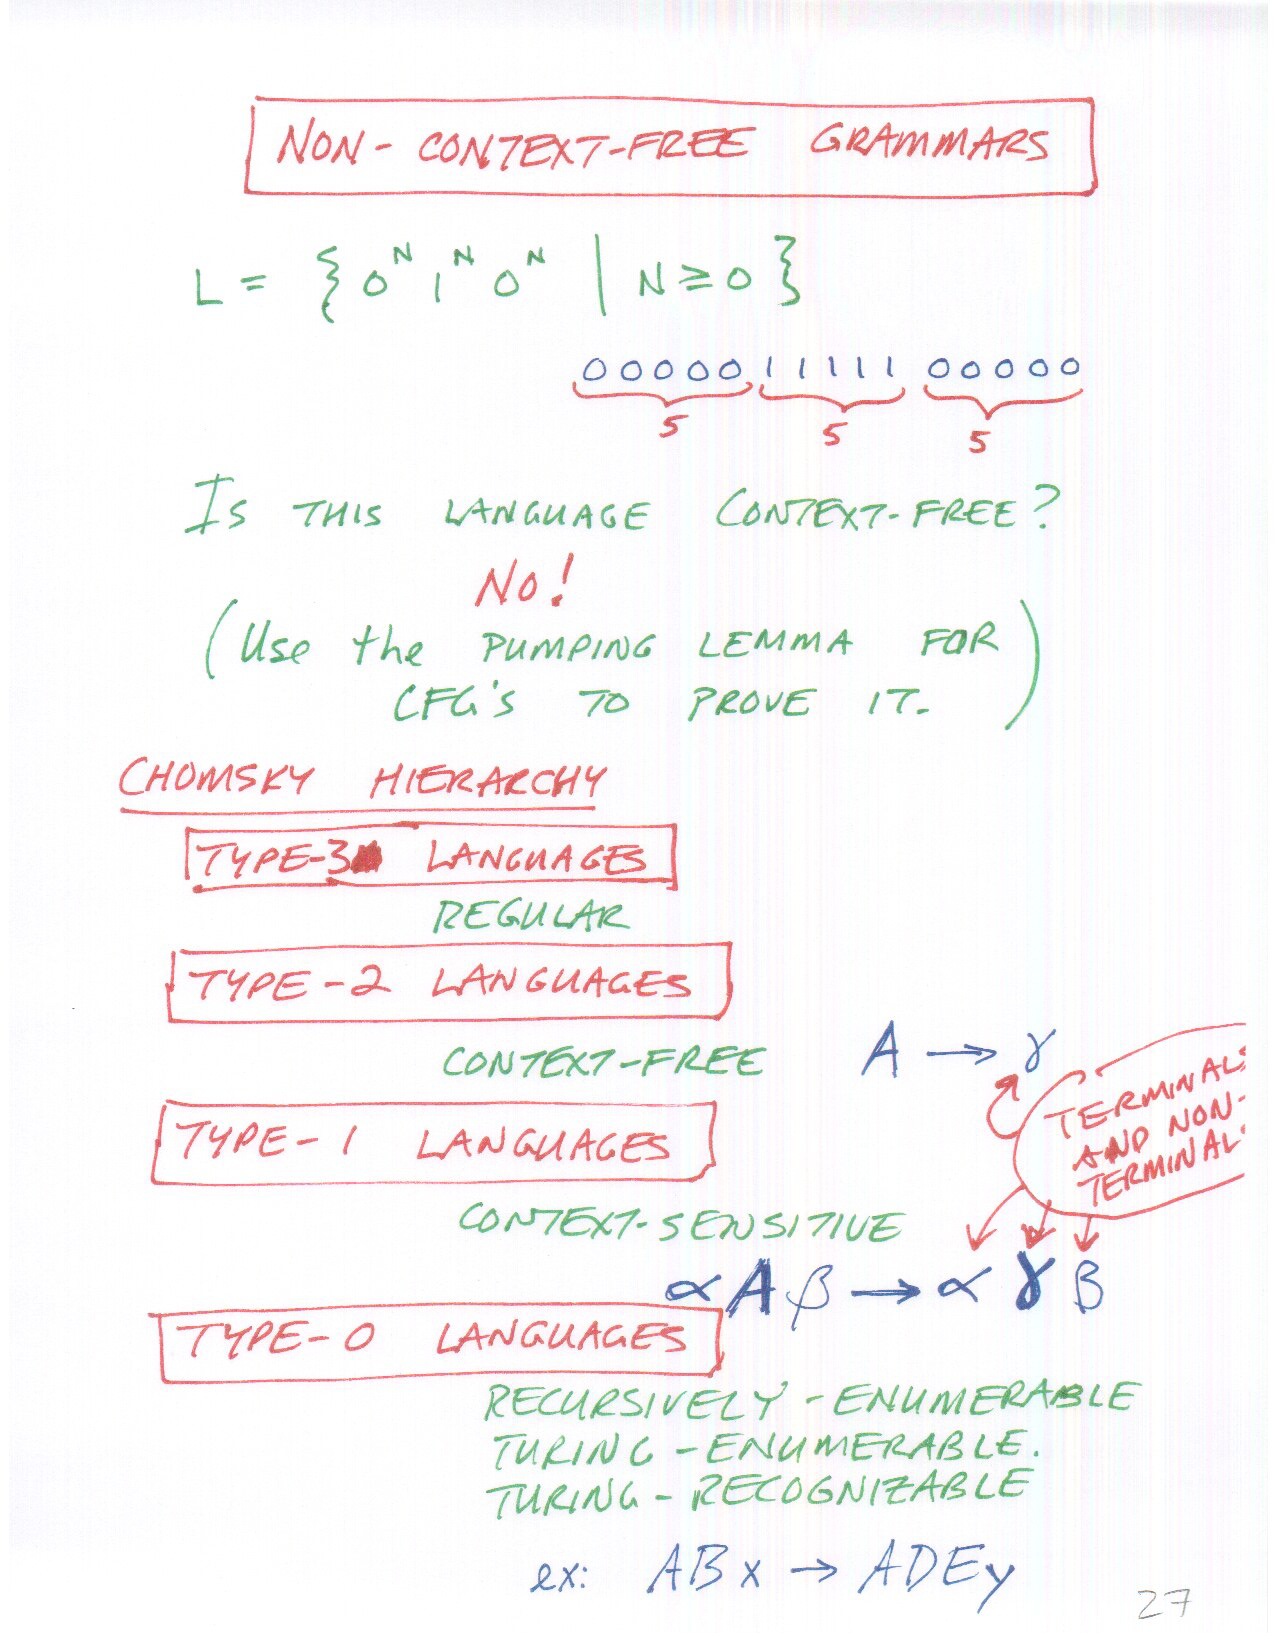 NON-CONTEXT-FREE GRAMMARS
L = { 0^N 1^N 0^N | N ≥ 0 }
0 0 0 0 0 1 1 1 1 1 0 0 0 0 0
5 5 5
IS THIS LANGUAGE CONTEXT-FREE?
NO!
(Use the PUMPING LEMMA FOR
CFG'S TO PROVE IT.)
CHOMSKY HIERARCHY
TYPE-3 LANGUAGES
REGULAR
TYPE-2 LANGUAGES
CONTEXT-FREE
A → γ
TERMINALS
AND NON-
TERMINALS
TYPE-1 LANGUAGES
CONTEXT-SENSITIVE
αAβ → αγβ
TYPE-0 LANGUAGES
RECURSIVELY-ENUMERABLE
TURING-ENUMERABLE.
TURING-RECOGNIZABLE
ex: ABx → ADEy
27